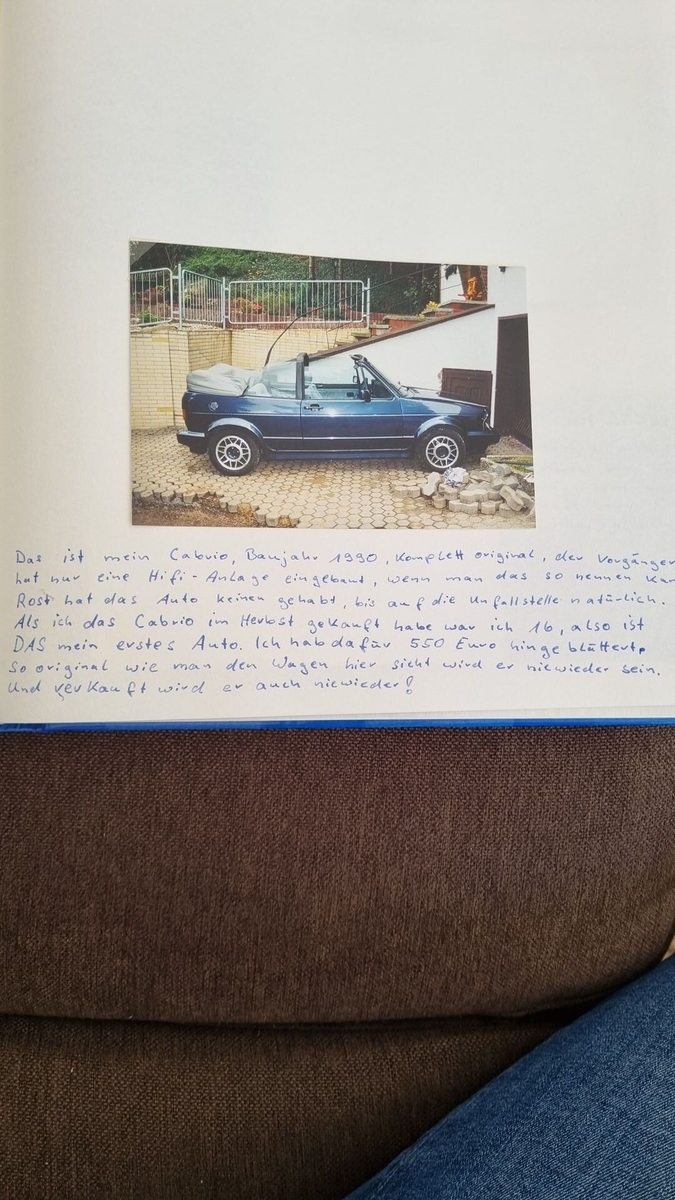 Das ist mein Cabrio, Baujahr 1990, Komplett original, der Vorgänger
hat nur eine Hifi-Anlage eingebaut, wenn man das so nennen kan
Rost hat das Auto keinen gehabt, bis auf die Unfallstelle natürlich.
Als ich das Cabrio im Herbst gekauft habe war ich 16, also ist
DAS mein erstes Auto. Ich hab dafür 550 Euro hingeblättert.
So original wie man den Wagen hier sieht wird er niewieder sein.
Und verkauft wird er auch niewieder!